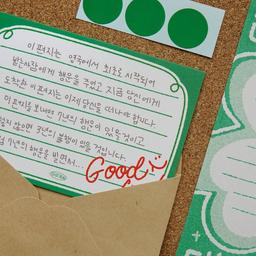 이 편지는 영국에서 최초로 시작되어
받는사람에게 행운을 주었고 지금 당신에게
도착한 이 편지는 이제 당신을 떠나야 합니다.
이 편지를 보내면 7년의 행운이 있을것이고
않으면 3년의 불행이 있을 것입니다.
7년의 행운을 빌면서...
Good